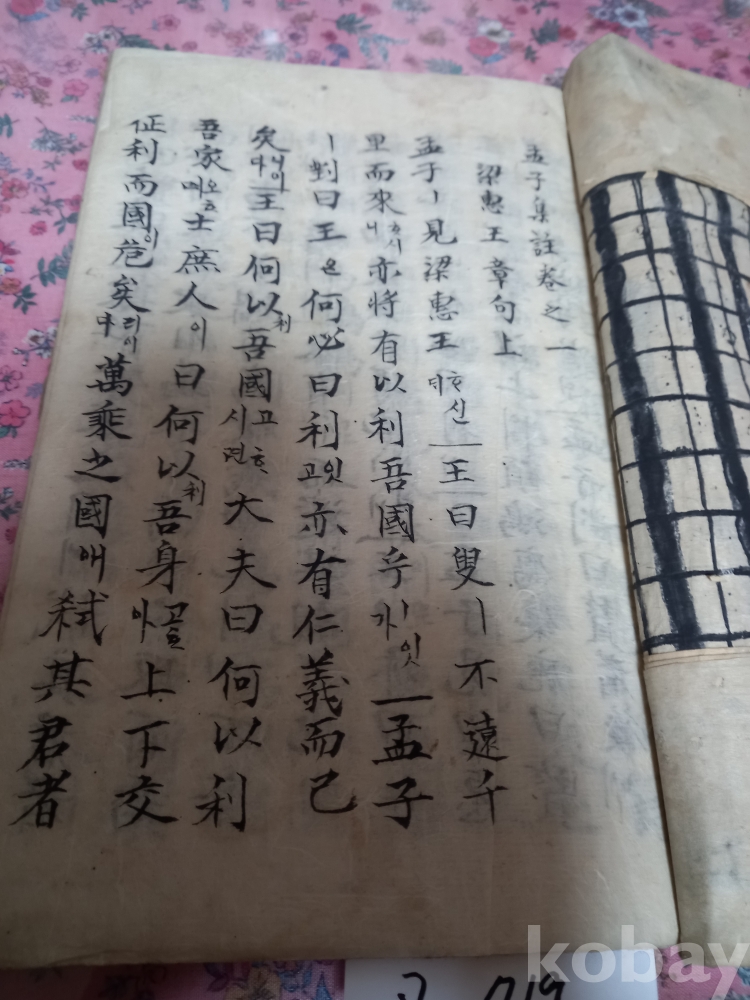 孟子集註卷之一
梁惠王章句上
孟子ㅣ見梁惠王ᄒᆞ신ᄃᆡ王曰叟ㅣ不遠千
里而來ᄒᆞ시니亦將有以利吾國乎ㅣ잇가孟子
ㅣ對曰王은何必曰利잇고亦有仁義而已
矣니이다王曰何以利吾國고ᄒᆞ시면大夫曰何以利
吾家오ᄒᆞ며士庶人이曰何以利吾身고ᄒᆞ야上下交
征利而國이危矣리이다萬乘之國애弑其君者
kobay